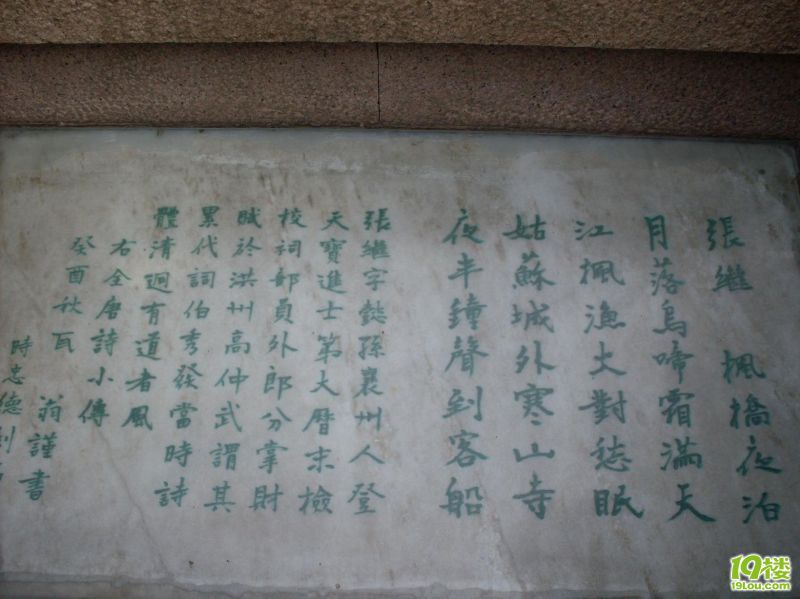 張繼 楓橋夜泊
月落烏啼霜滿天
江楓漁火對愁眠
姑蘇城外寒山寺
夜半鐘聲到客船
張繼字懿孫襄州人登
天寶進士第大曆末檢
校祠部員外郎分掌財
賦於洪州高仲武謂其
累代詞伯秀發當時詩
體清迥有道者風
右全唐詩小傳
癸酉秋瓦
翁謹書
時忠德刻
19楼
19lou.com